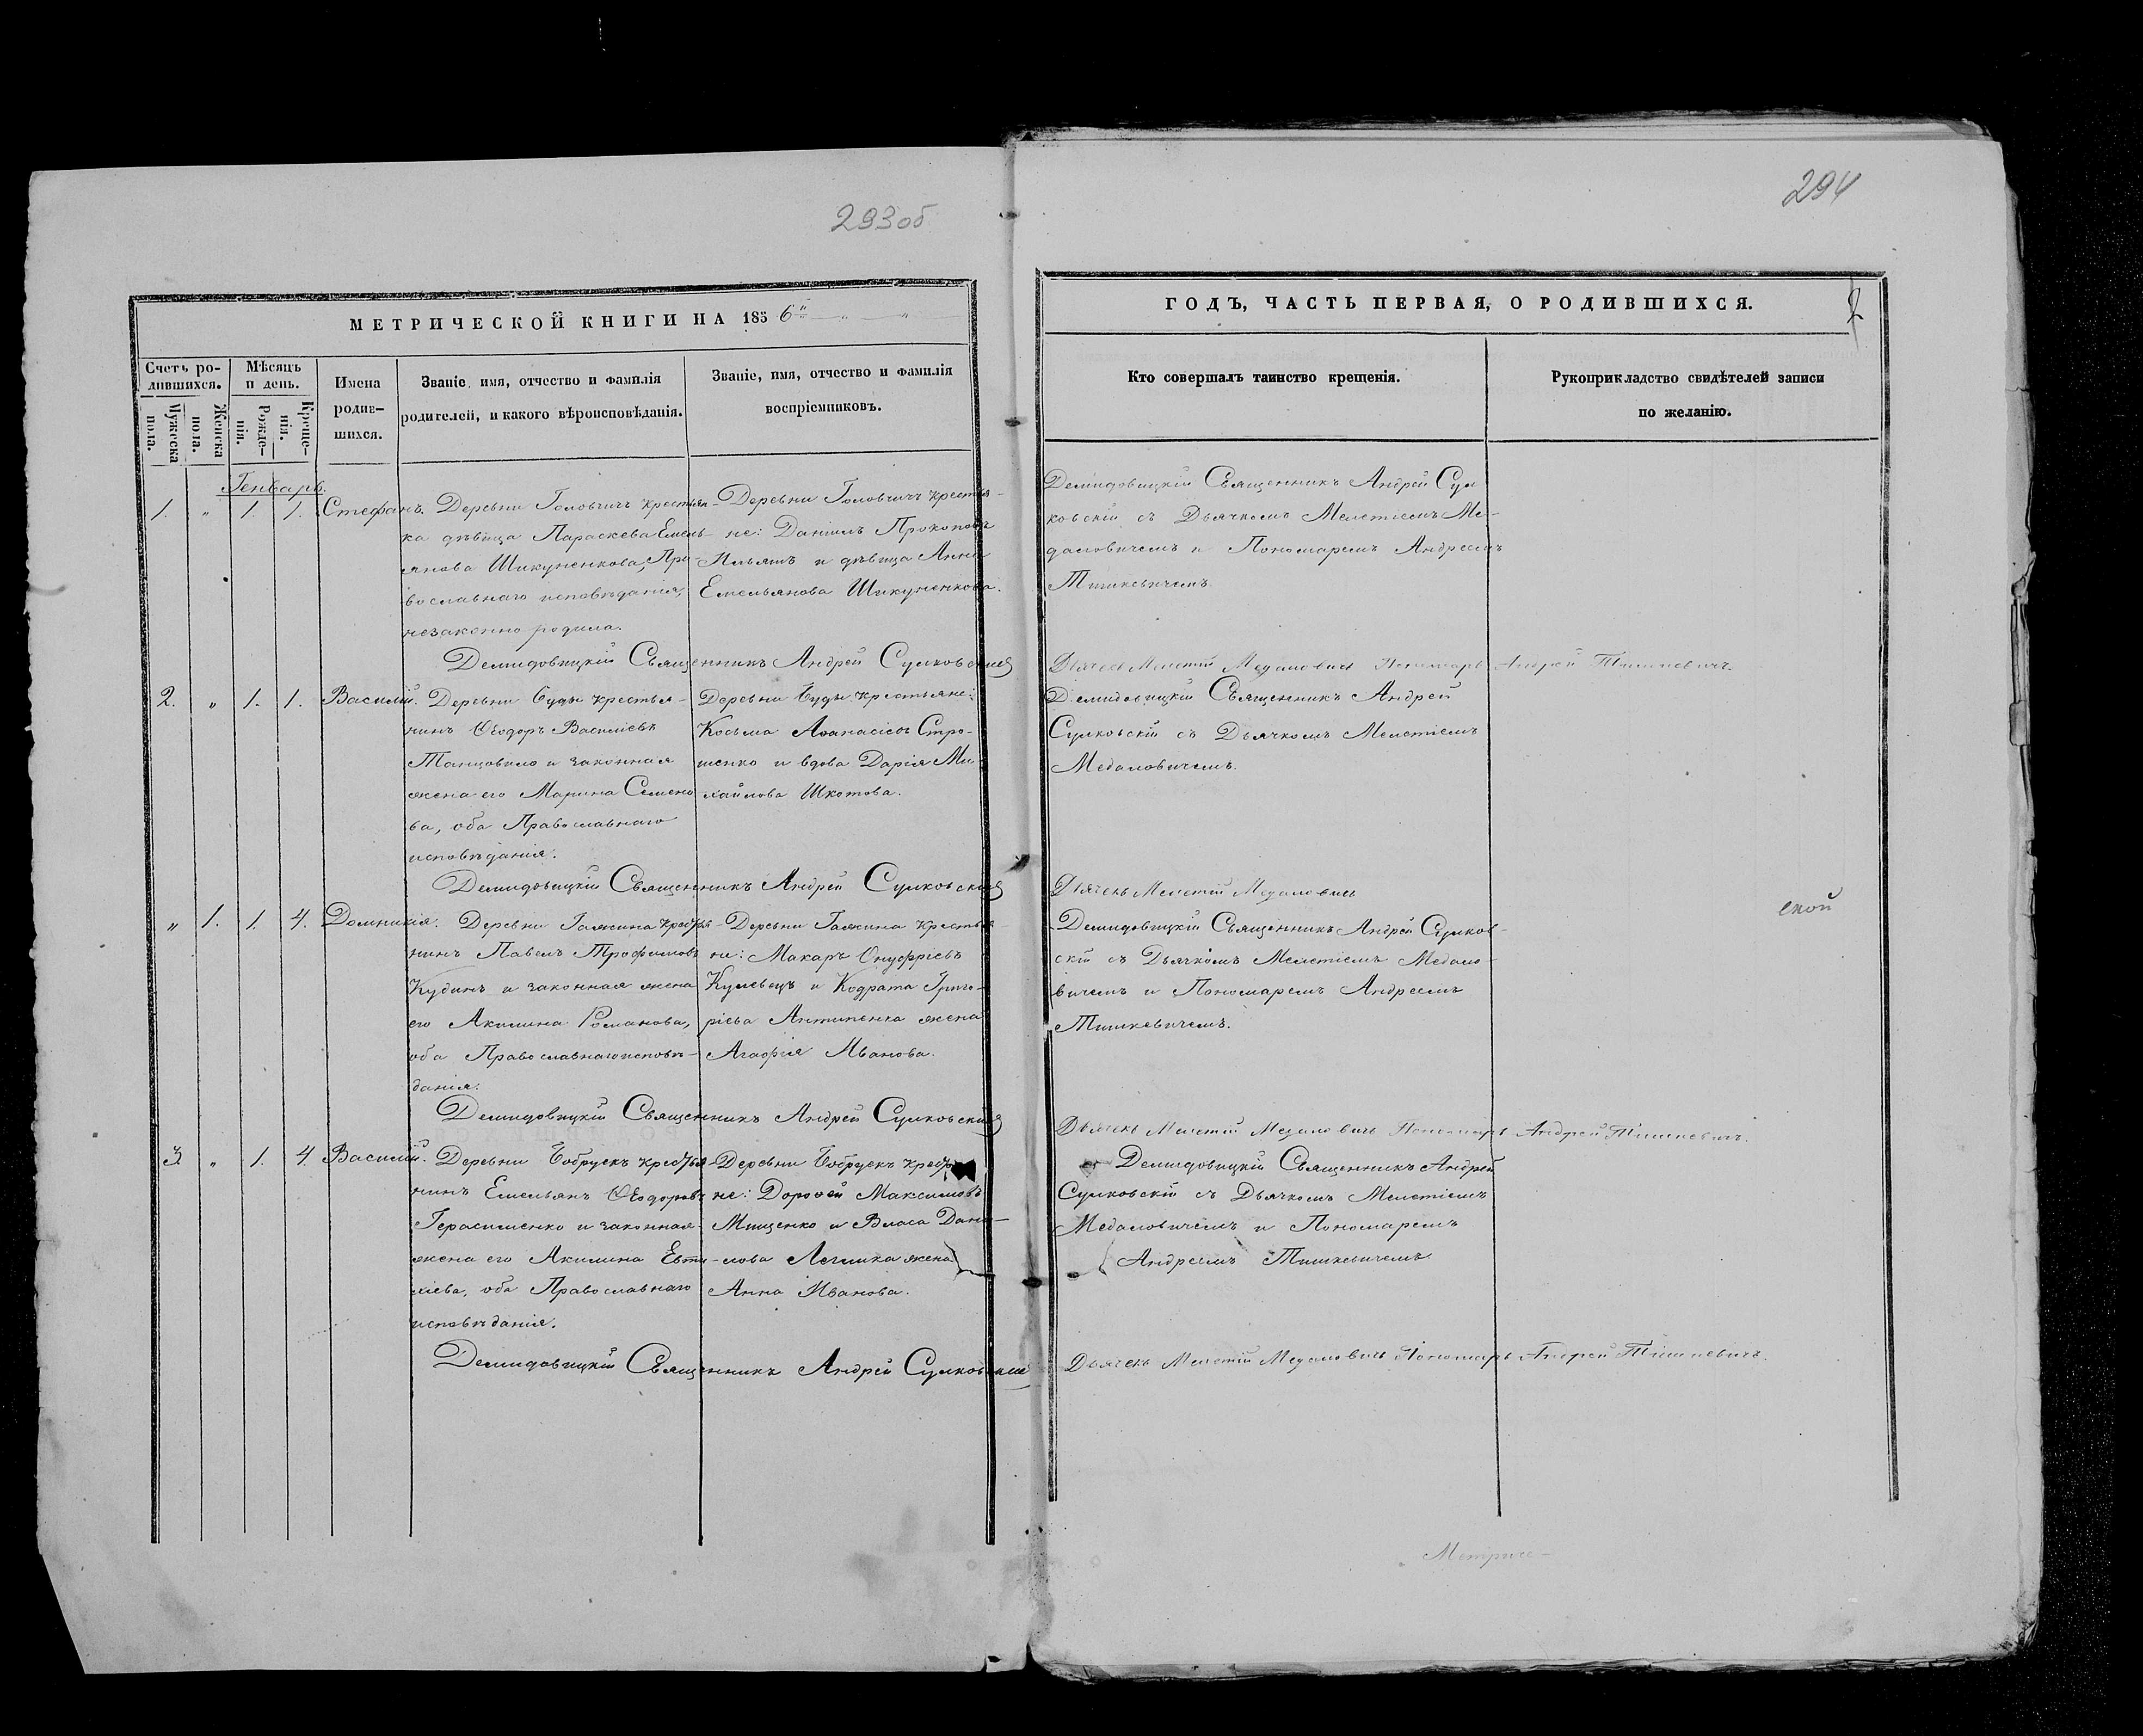 293об
294
МЕТРИЧЕСКОЙ КНИГИ НА 1856й
ГОДЪ, ЧАСТЬ ПЕРВАЯ, О РОДИВШИХСЯ.
2
Счетъ ро-
дившихся.
Мужеска
пола.
Женска
пола.
Мѣсяцъ
и день.
Рожде-
нія.
Креще-
нія.
Имена
родив-
шихся.
Званіе, имя, отчество и фамилія
родителей, и какого вѣроисповѣданія.
Званіе, имя, отчество и фамилія
воспріемниковъ.
Кто совершалъ таинство крещенія.
Рукоприкладство свидѣтелей записи
по желанію.
Генварь.
1. " 1. 1. Стефанъ.
Деревни Головчичъ крестьян-
ка дѣвица Параскева Емель-
янова Шикуненкова, Пра-
вославнаго исповѣданія,
незаконно родила.
Деревни Головчичъ крестья-
не: Даніилъ Прокоповъ
Ильяшъ и дѣвица Анна
Емельянова Шикуненкова.
Демидовицкій Священникъ Андрей Сул-
ковскій съ Дьячкомъ Мелетіемъ Ме-
даловичемъ и Пономаремъ Андреемъ
Тишкевичемъ.
Демидовицкій Священникъ Андрей Сулковскій
Дьячекъ Мелетій Медаловичъ Пономарь Андрей Тишкевичъ.
2. " 1. 1. Василій.
Деревни Буды крестья-
нинъ Ѳеодоръ Василіевъ
и законная
жена его Марина Семено-
ва, оба Православнаго
исповѣданія.
Деревни Буды крестьяне:
Косьма Аѳанасіевъ Стро-
шенко и вдова Дарія Ми-
хайлова Шкотова.
Демидовицкій Священникъ Андрей
Сулковскій съ Дьячкомъ Мелетіемъ
Медаловичемъ.
Демидовицкій Священникъ Андрей Сулковскій
Дьячекъ Мелетій Медаловичъ
ской
" 1. 1. 4. Домникія.
Деревни Галжина крестья-
нинъ Павелъ Трофимовъ
Кудинъ и законная жена
его Акилина Романова,
оба Православнаго исповѣ-
данія.
Деревни Галжина крестья-
не: Макаръ Онуфріевъ
Кулевецъ и Кодрата Григо-
ріева Антипенка жена
Агафія Иванова.
Демидовицкій Священникъ Андрей Сулков-
скій съ Дьячкомъ Мелетіемъ Медало-
вичемъ и Пономаремъ Андреемъ
Тишкевичемъ.
Демидовицкій Священникъ Андрей Сулковскій
Дьячекъ Мелетій Медаловичъ Пономарь Андрей Тишкевичъ.
3. " 1. 4. Василій.
Деревни Бобрускъ крестья-
нинъ Емельянъ Ѳеодоровъ
Герасименко и законная
жена его Акилина Евти-
хіева, оба Православнаго
исповѣданія.
Деревни Бобрускъ
не: Дороѳей Максимовъ
Мищенко и Власа Дани-
лова жена
Анна Иванова.
Демидовицкій Священникъ Андрей
Сулковскій съ Дьячкомъ Мелетіемъ
Медаловичемъ и Пономаремъ
Андреемъ Тишкевичемъ.
Демидовицкій Священникъ Андрей Сулковскій
Дьячекъ Мелетій Медаловичъ Пономарь Андрей Тишкевичъ.
Метриче-